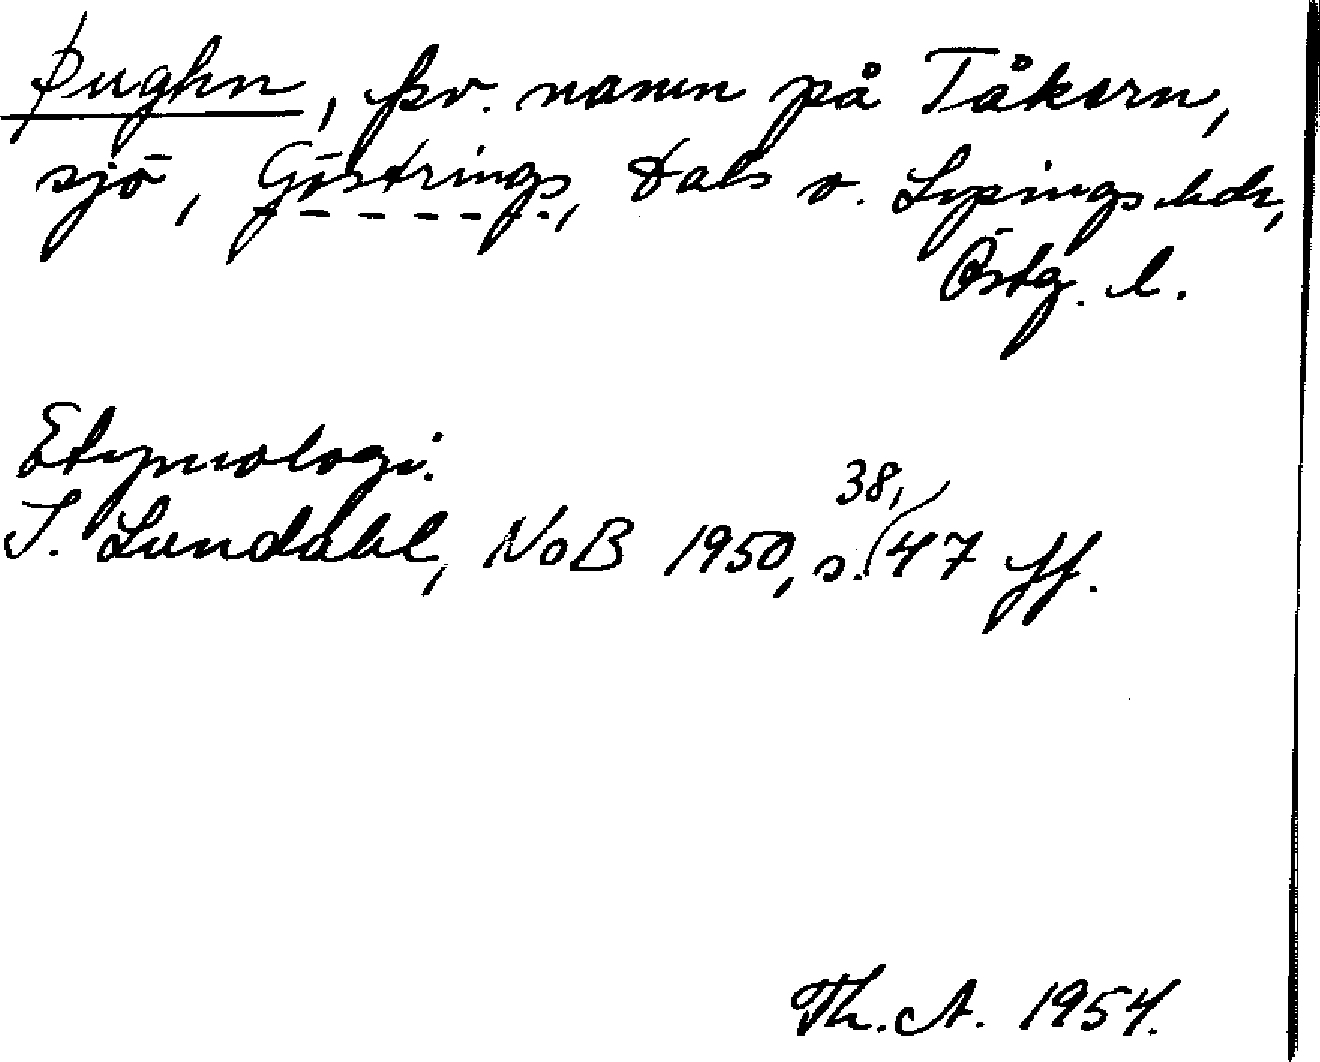 Þughn, fsv. namn på Tåkern,
sjö, Göstrings, Dals o. Lysings hdr,
Östg. l.
Etymologi.
I. Lundahl, NoB 1950, s. 38, 47 ff.
Th. A. 1954.